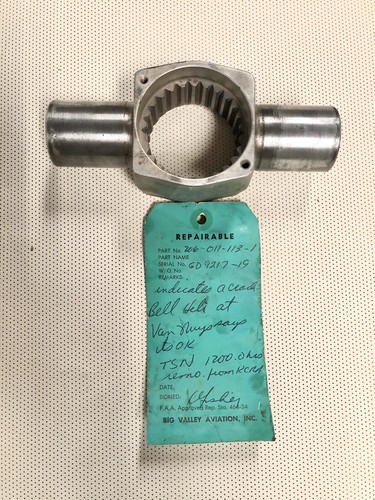 REPAIRABLE
PART No. 206-011-113-1
PART NAME
SERIAL No. GD9217-19
W/O. No.
REMARKS
indicates a crack
Bell Heli at
Van Nuys says
its OK
TSN 1200.0 hrs
remo. from
DATE,
SIGNED:
F.A.A. Approved Rep. Sta. 464-34
BIG VALLEY AVIATION, INC.